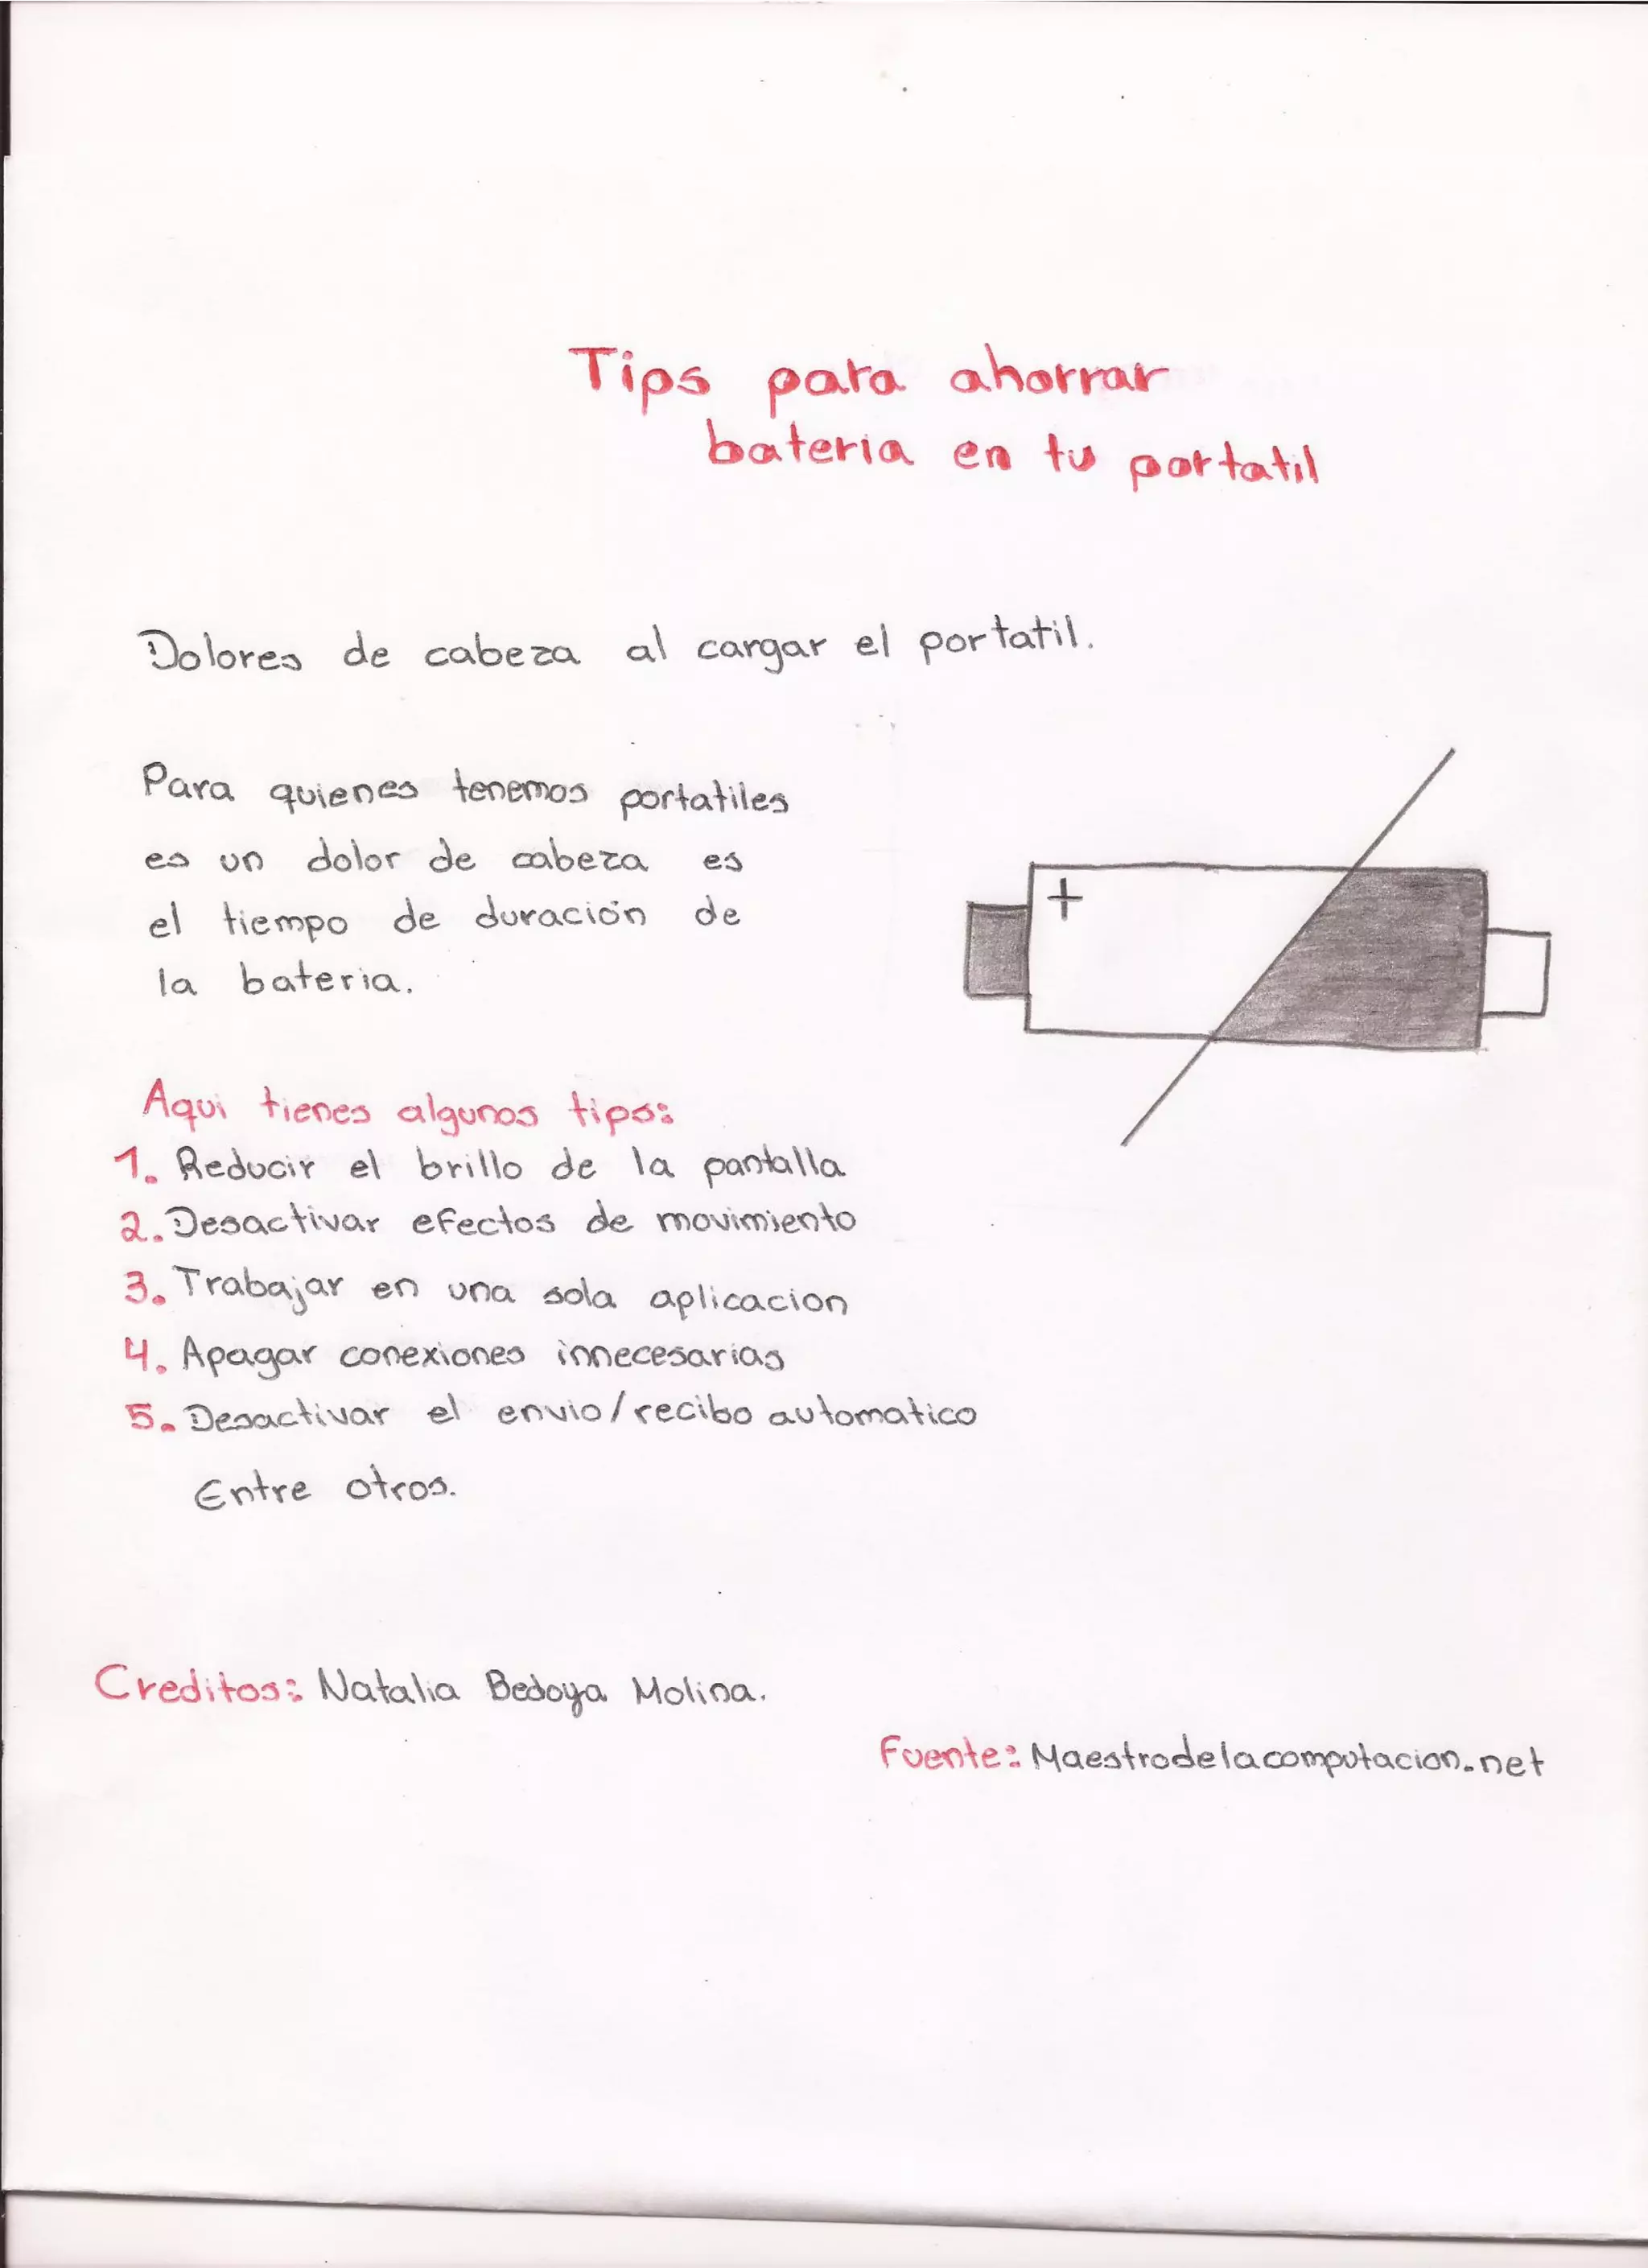 Tips para ahorrar
bateria en tu portatil
Dolores de cabeza al cargar el portatil.
Para quienes tenemos portatiles
es un dolor de cabeza es
el tiempo de duración de
la bateria.
+
Aqui tienes algunos tips:
1. Reducir el brillo de la pantalla
2. Desactivar efectos de movimiento
3. Trabajar en una sola aplicacion
4. Apagar conexiones innecesarias
5. Desactivar el envio/recibo automatico
Entre otros.
Creditos: Natalia Bedoya Molina.
Fuente: Maestrodelacomputacion.net